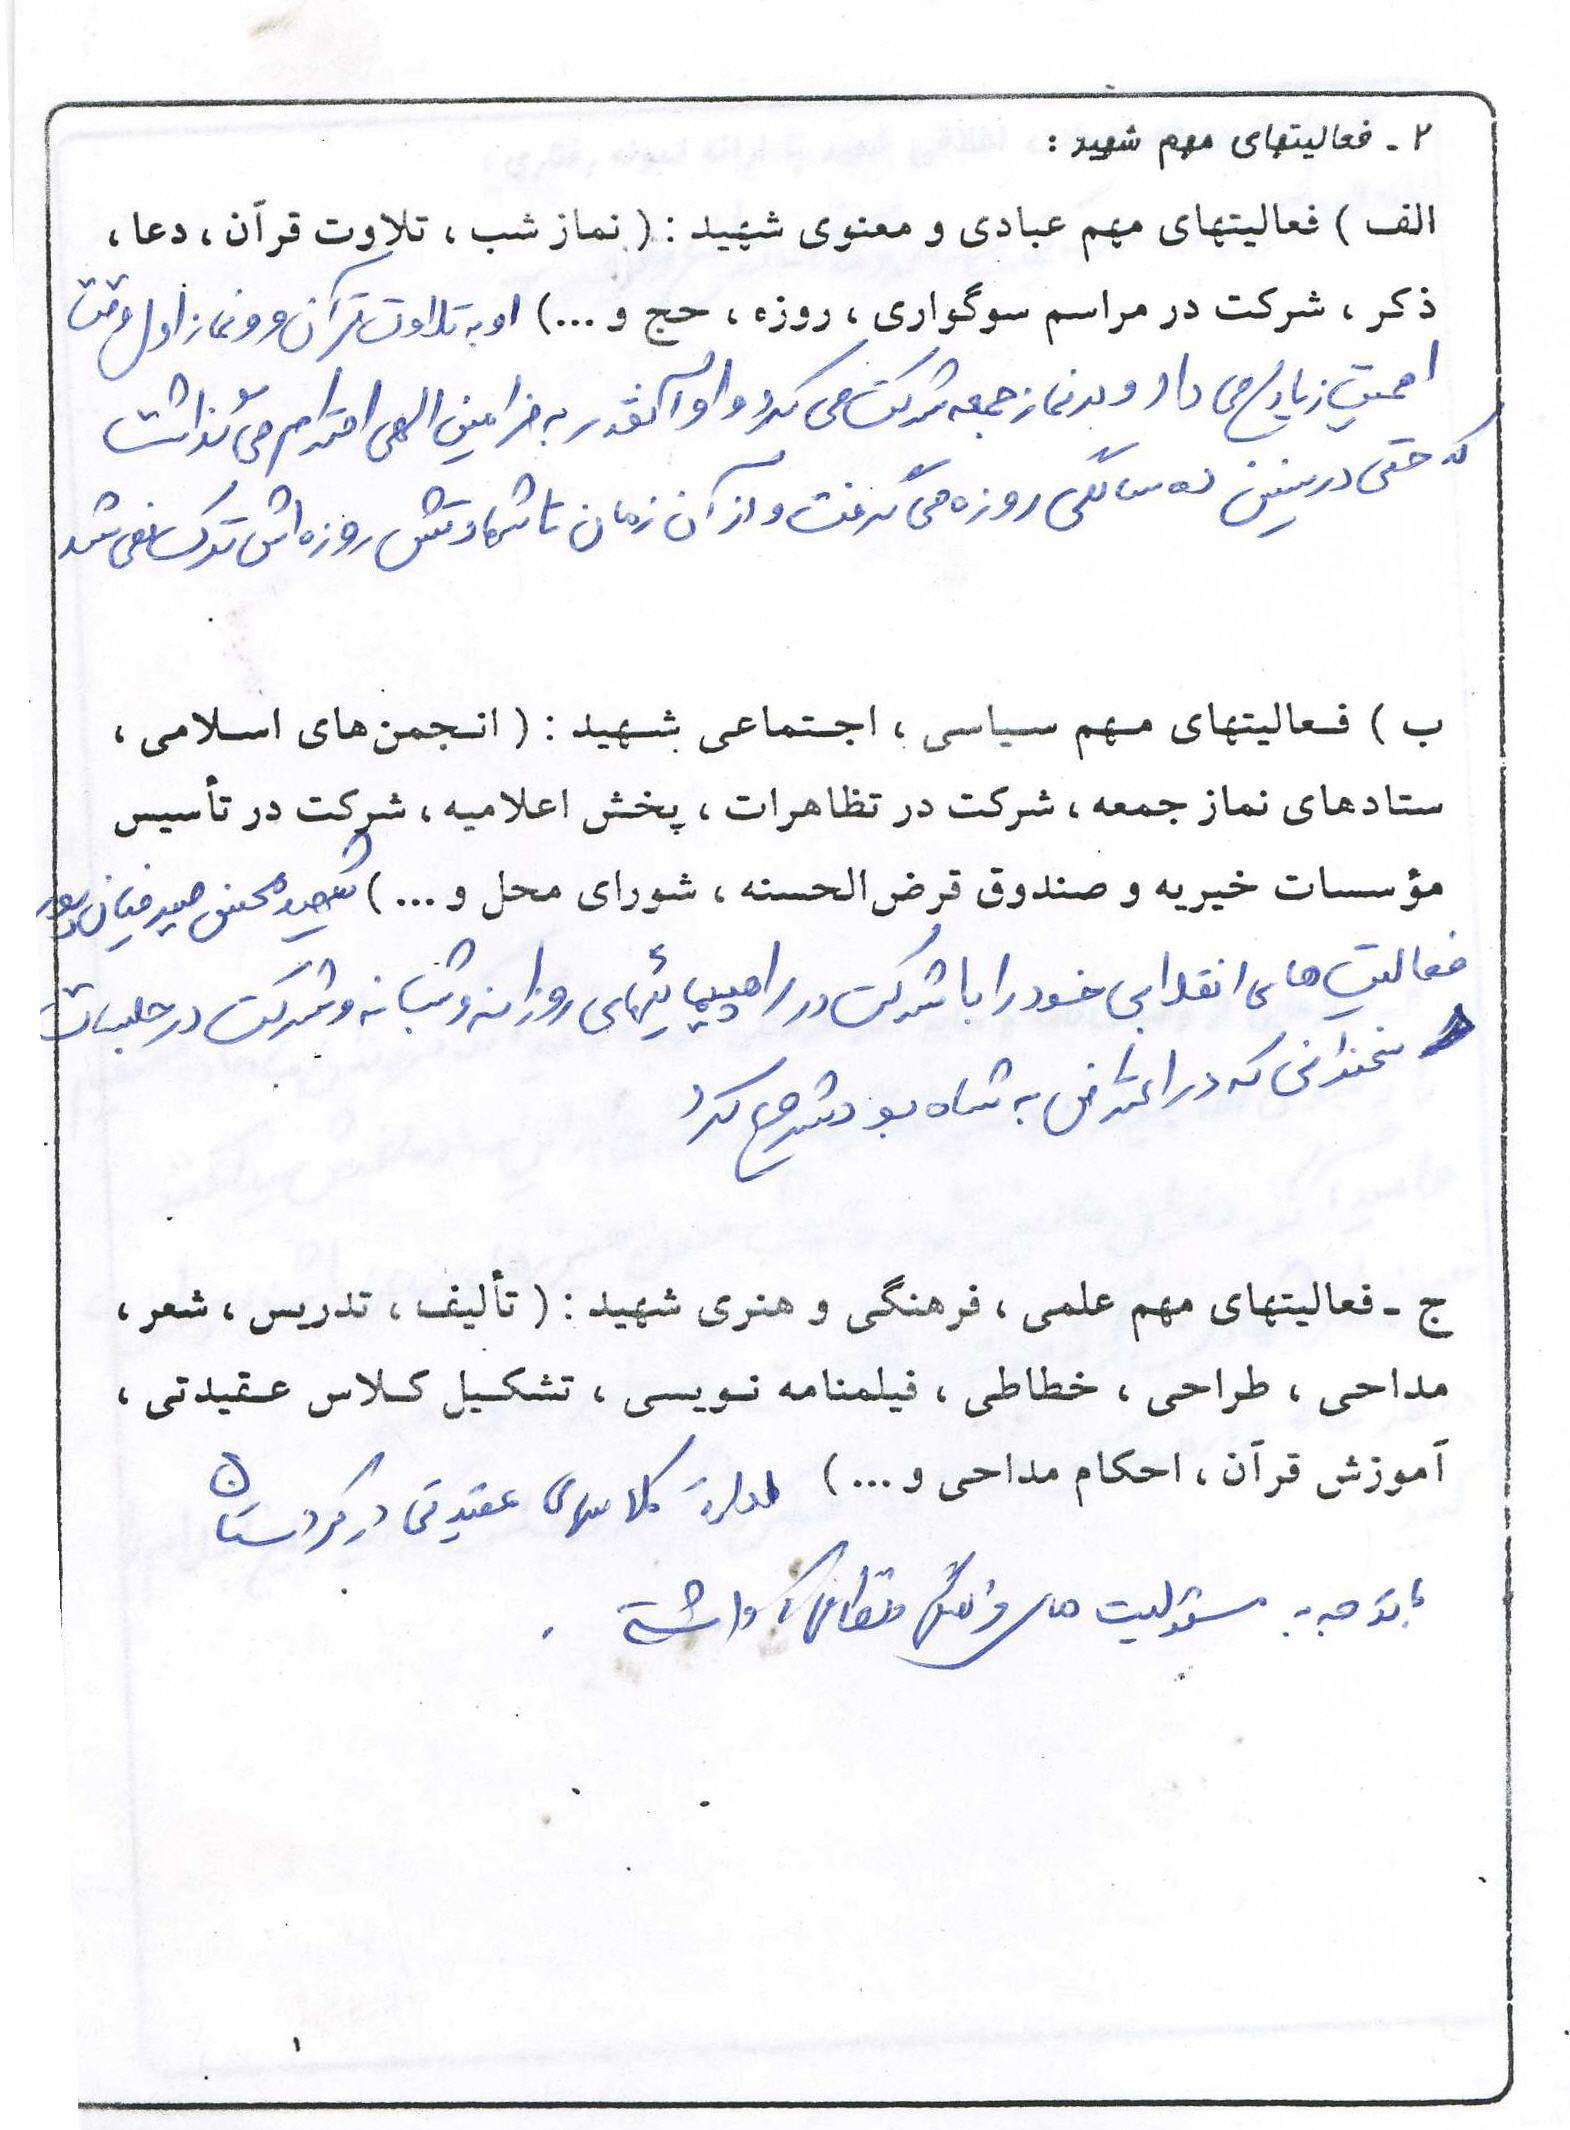 ۲ - فعالیتهای مهم شهید :
الف ) فعالیتهای مهم عبادی و معنوی شهید : ( نماز شب ، تلاوت قرآن ، دعا ،
ذکر ، شرکت در مراسم سوگواری ، روزه ، حج و ... ) او به تلاوت قرآن و نماز اول وقت
اهمیت زیادی می داد و در نماز جمعه شرکت می کرد و او آنقدر به فرامین الهی احترام می گذاشت
که حتی در سنین ده سالگی روزه می گرفت و از آن زمان تا شهادتش روزه اش ترک نمی شد
ب ) فعالیتهای مهم سیاسی ، اجتماعی شهید : ( انجمن‌های اسلامی ،
ستادهای نماز جمعه ، شرکت در تظاهرات ، پخش اعلامیه ، شرکت در تأسیس
مؤسسات خیریه و صندوق قرض‌الحسنه ، شورای محل و ... ) شهید محسن پور
فعالیت های انقلابی خود را با شرکت در راهپیمائیهای روزانه و شبانه و شرکت در جلسات
سخنرانی که در اعتراض به شاه بود شروع کرد
ج - فعالیتهای مهم علمی ، فرهنگی و هنری شهید : ( تألیف ، تدریس ، شعر ،
مداحی ، طراحی ، خطاطی ، فیلمنامه نویسی ، تشکیل کلاس عقیدتی ،
آموزش قرآن ، احکام مداحی و ... ) اداره کلاسهای عقیدتی در کردستان
با توجه به مسئولیت های فرهنگی داشته .
۱